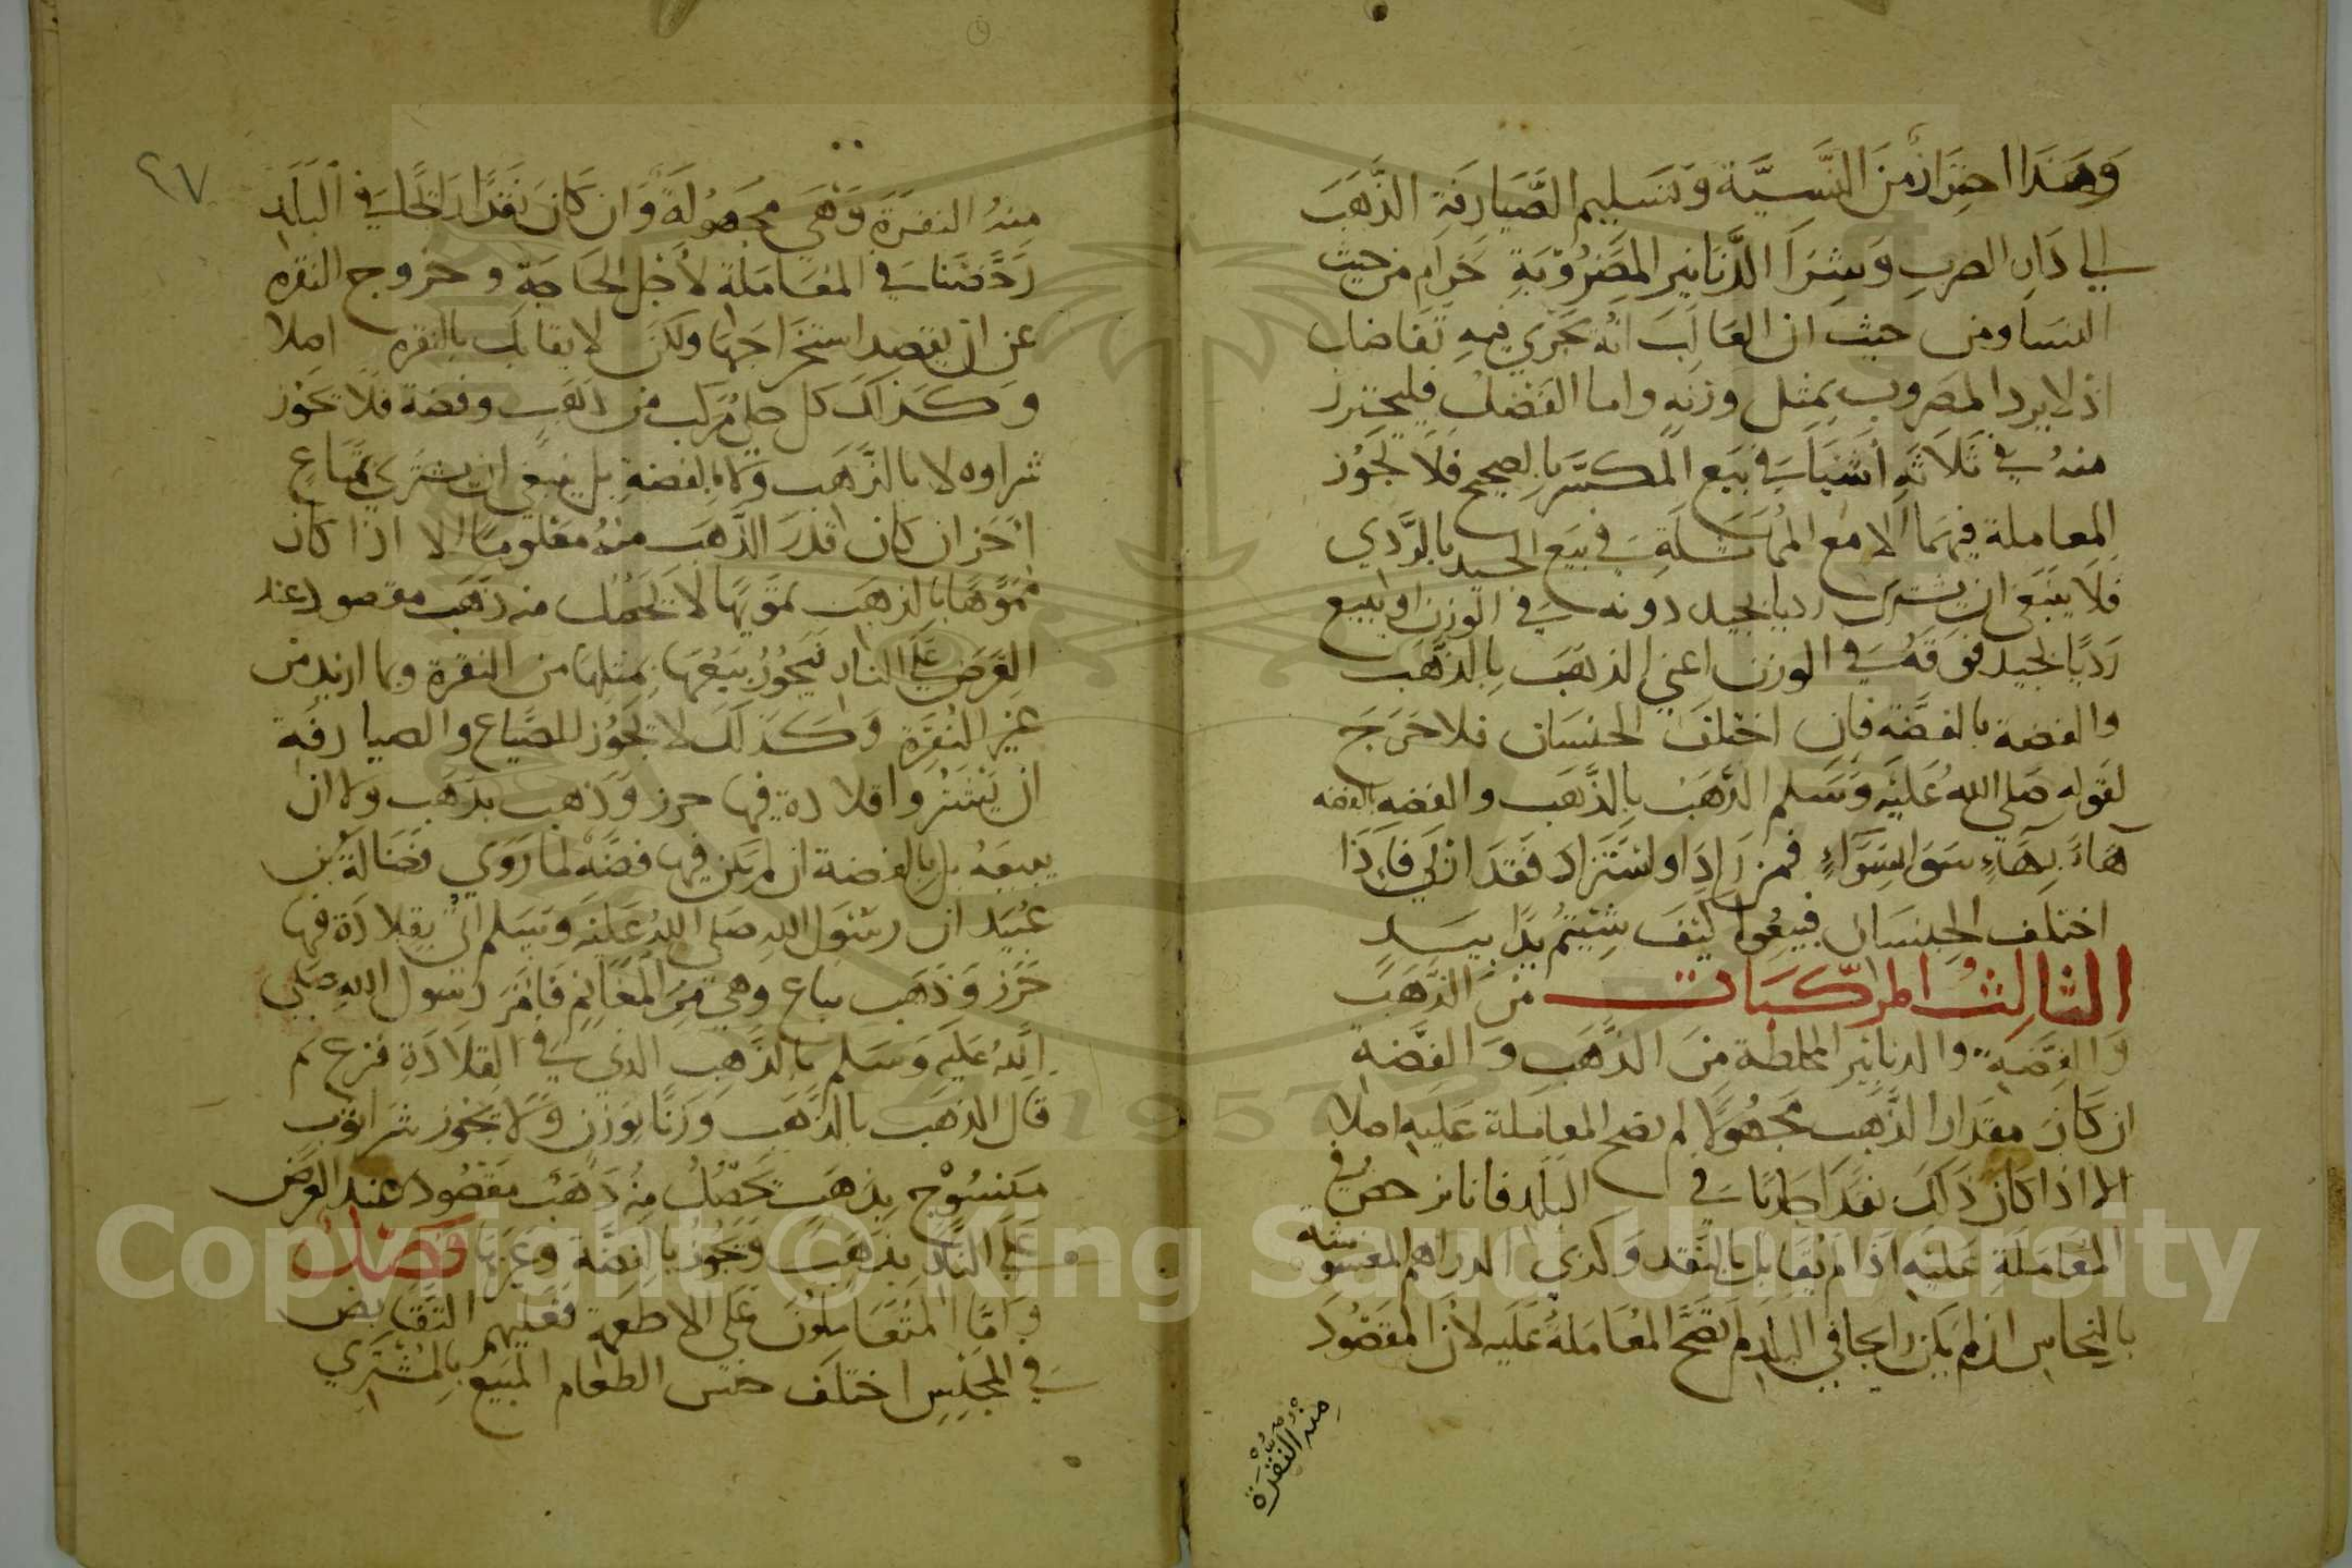 وَهَذَا احتِرَازٌ مِنَ النَّسِيَّة وَتَسَلِيم الصَّيَارفَةِ الذَّهَبَ
الي دَارِ الضربِ وَشِرَا الدَّنَانِير المَضرُوبَةِ حَرَام من حيث
النسَا ومن حيث ان الغَالِبَ انّه يجرَي فيهِ تفَاضل
اذ لا يرد المضروب بمِثل وزنهِ واما الفَضل فليحترز
منهُ في ثَلَاثَةِ أشيَا في بَيع المكسَّر بالصحيح فَلا يجُوز
المعاملة فيهما الا مع المُمَاثلَةِ في بَيع الجيد بالرَّدي
فَلَا ينبَغي ان يشتري رديا بجيد دونه في الوزن او يبيع
رَديًا بجيد فوقَهُ في الوزن اعني الذهَبَ بالذَّهَب
والفضة بالفضَّة فان اختلَف الجنسَان فلا حَرَجَ
لقوله صَلي اللهُ عَليهِ وَسَلم الذّهَبُ بالذَّهَب والفضه بالفضه
هَاءً بِهَاءٍ سَوَا بِسَوَّاءٍ فمن زَادَ او استَزاد فَقد اربَي فَاِذَا
اختلَف الجِنسَان فبيعُوا كَيفَ شِيتُم يدًا بيَدٍ
الثالثُ المركّبَات من الذَّهَب
وَالفِضَةِ والدنانير المخلطة منَ الذَّهَب وَالفَضَّةِ
ان كَانَ مقدَار الذَّهَب مجهُولًا لم تصَح المعَاملة عَليهِ اصلا
الا اذا كَانَ ذَلكَ نقدًا جَاريًا في البلَد فانا نرخصُ في
المُعَامَلَةِ عَليهِ اذَا لم يُقَابل بالنَّقد وَكذي الدراهم المغشوشة
بالنحَاس ان لم يَكن رايجا في البلَدِ لم تصَحَّ المُعَامَلة عَليهِ لأن المَقصُودَ
منهُ النقرَة
٩٧
منهُ النقرَة وَهي مجهُولَة وَان كَانَ نقدًا رايجًا في البَلَدِ
رَخّصنا في المعَاملة لأجل الحَاجَة وخروج النقره
عن ان يقصد استخرَاجها ولكن لا يقابَل بالنقره اصلا
وَكَذلك كل حلي مُركب من ذهَب وفضة فلَا يجَوز
شراوه لا بالذَّهَب وَلا بالفضةِ بل ينبغي ان يشتَري بمتَاع
اخَر ان كان قَدرَ الذَّهَب منهُ معلُومًا الا اذَا كانَ
ممَوَّهًا بالذهَب تموَيهًا لا يحصُل منه ذهَب مقصود عند
العَرض عَلَي النار فيَجُوزُ بَيعُهَا بمثلهَا من النقرَة وبما اريد من
غير النُقرَةِ وَكَذَلَكَ لا يجُوز للصيَّاغ والصيارفَةِ
ان يَشترُوا قلادة فيها خرز وَذَهب بذَهَب ولا ان
يبيعَهُ بل بالفضة ان لم يَكن فيها فضَّة لما رَوَي فضَالَةُ بن
عُبَيد ان رسُول اللهِ صَلي اللهُ عَلَيه وَسَلم اتي بقِلادَة فيها
خَرَز وَذَهَب تباع وهي مِنَ المغَانِم فَامَرَ رسُول اللهِ صلي
اللهُ عَليهِ وَسَلم بالذَّهَب الذي في القِلَادَةِ فنزع ثم
قال الذهب بالذَّهَب وَزنًا بوَزنٍ وَلا يجَوز شرا ثوَب
مَنسُوج بِذهَب يحَصُل منهُ ذهَبٌ مَقصُود عند العَرض
عَلي النَّار بذَهَب وَيجُوز بالفضَّة وَغيرهَا فصَل
وَامَّا المُتَعَاملُونَ عَلي الاطعِمَة فعَليهم التقَابض
في المجلِسِ اختلَف جنس الطعَام المَبيع بالمُشتَري